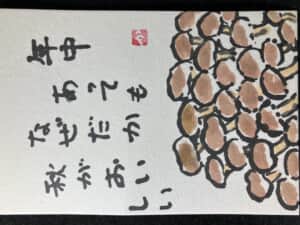 年中
あっても
なぜだか
秋がおいしい